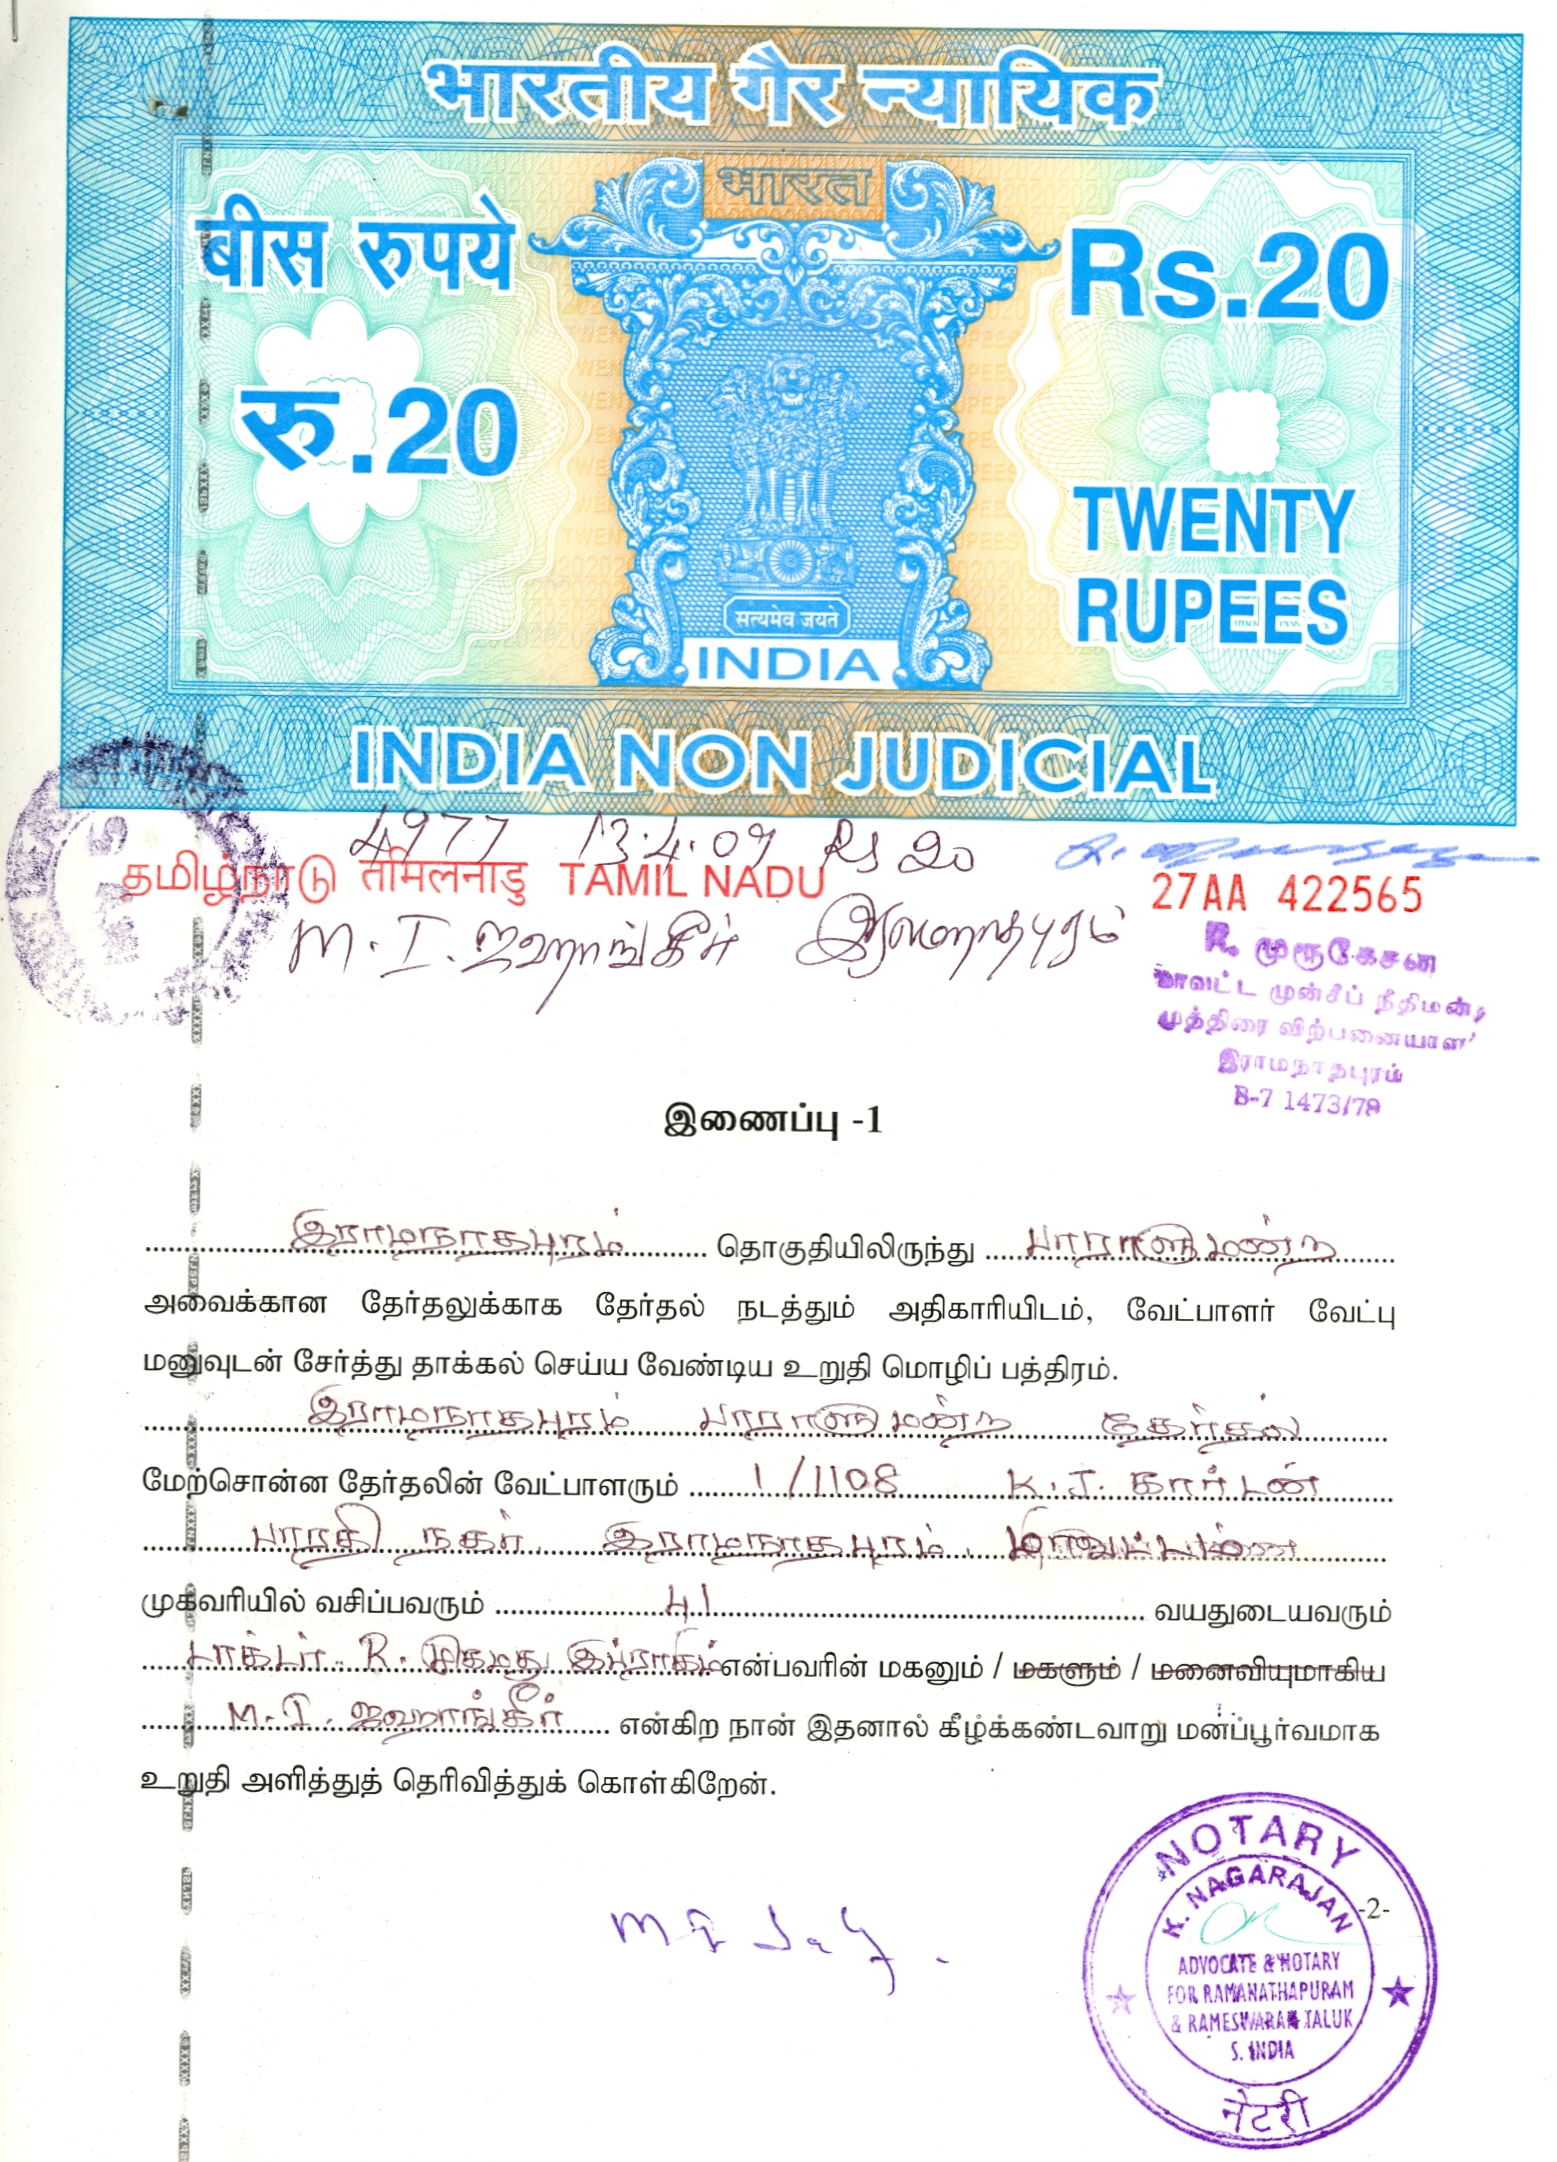 भारतीय गैर न्यायिक
भारत
बीस रुपये
Rs.20
रु.20
TWENTY
RUPEES
सत्यमेव जयते
INDIA
INDIA NON JUDICIAL
4977 13.4.09 Rs 20
தமிழ்நாடு तमिलनाडु TAMIL NADU
27AA 422565
M. I. ஜஹாங்கீர் இராமநாதபுரம்
R. முருகேசன்
மாவட்ட முன்சீப் நீதிமன்ற
முத்திரை விற்பனையாளர்
இராமநாதபுரம்
B-7 1473/79
இணைப்பு -1
இராமநாதபுரம் தொகுதியிலிருந்து பாராளுமன்ற
அவைக்கான தேர்தலுக்காக தேர்தல் நடத்தும் அதிகாரியிடம், வேட்பாளர் வேட்பு
மனுவுடன் சேர்த்து தாக்கல் செய்ய வேண்டிய உறுதி மொழிப் பத்திரம்.
இராமநாதபுரம் பாராளுமன்ற தேர்தல்
மேற்சொன்ன தேர்தலின் வேட்பாளரும் 1/1108 K.J. கார்டன்
பாரதி நகர். இராமநாதபுரம்.
முகவரியில் வசிப்பவரும் 41 வயதுடையவரும்
டாக்டர். R. முகமது இப்ராகிம் என்பவரின் மகனும் / மகளும் / மனைவியுமாகிய
M.I. ஜஹாங்கீர் என்கிற நான் இதனால் கீழ்க்கண்டவாறு மனப்பூர்வமாக
உறுதி அளித்துத் தெரிவித்துக் கொள்கிறேன்.
-2-
NOTARY
K. NAGARAJAN
ADVOCATE & NOTARY
FOR RAMANATHAPURAM
& RAMESWARAM TALUK
S. INDIA
नोटरी